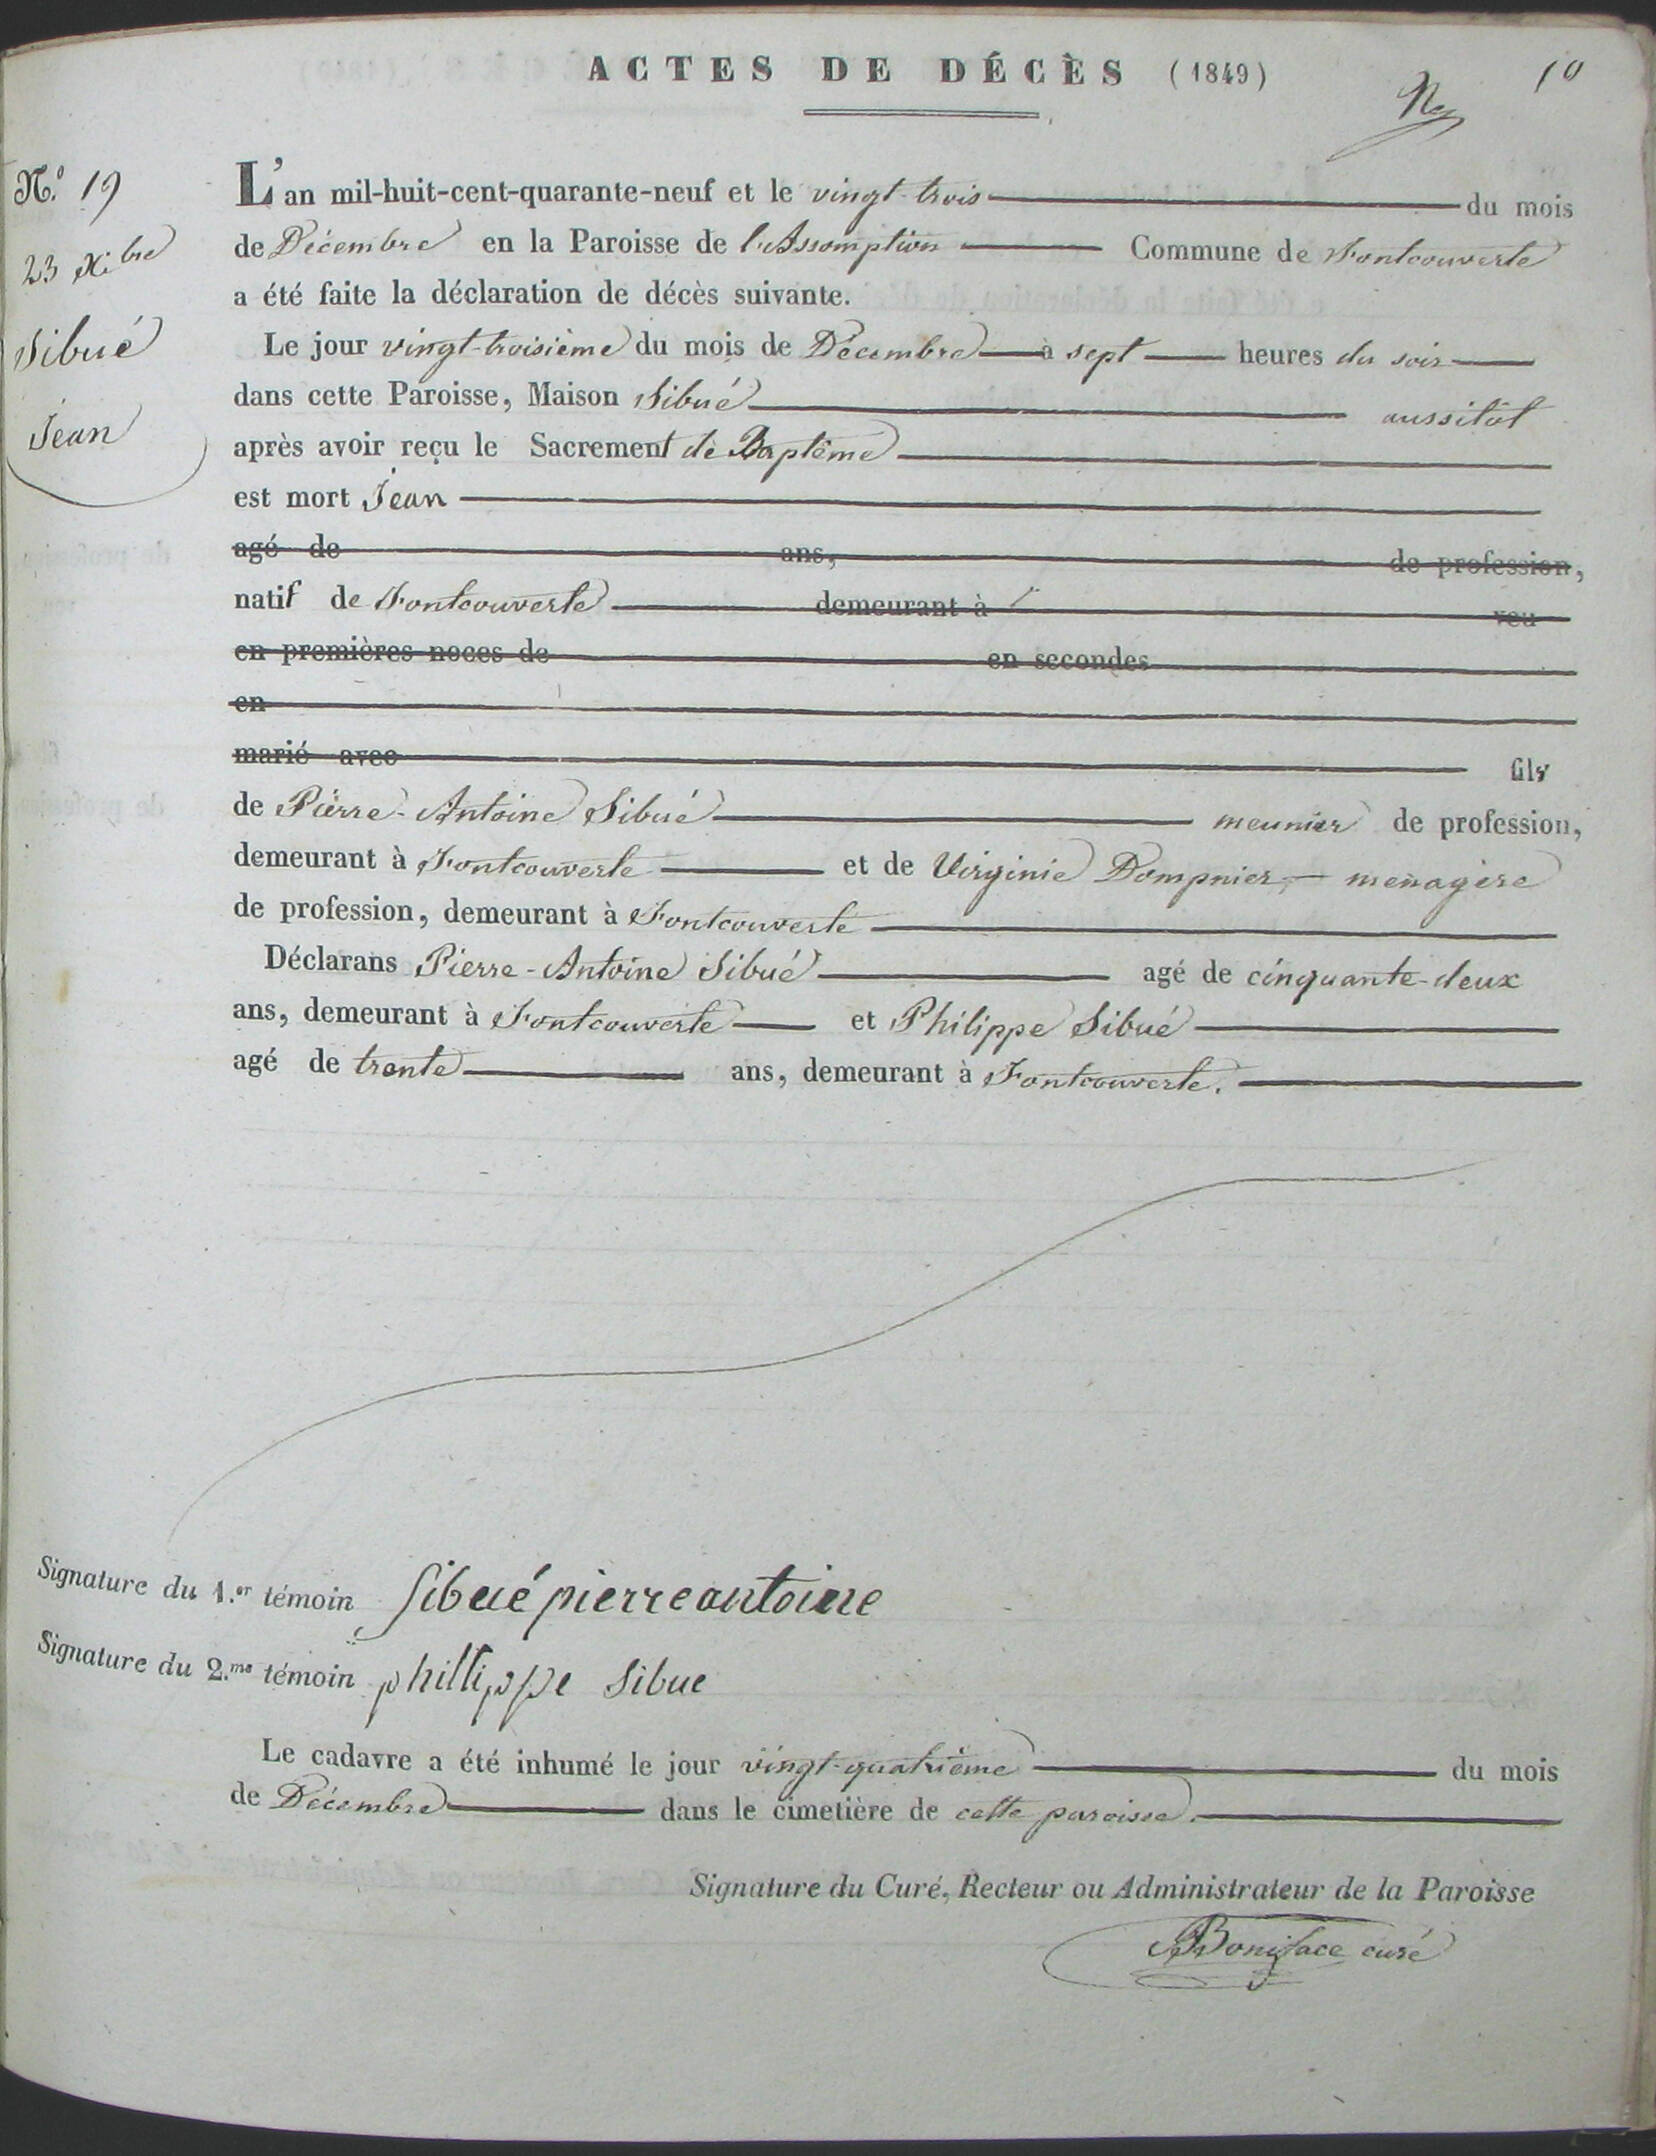 ACTES DE DÉCÈS (1849)
10
N.º 19
23 Xibre
Sibué
Jean
L'an mil-huit-cent-quarante-neuf et le vingt-trois du mois
de Décembre en la Paroisse de l'Assomption Commune de Fontcouverte
a été faite la déclaration de décès suivante.
Le jour vingt-troisième du mois de Décembre à sept heures du soir
dans cette Paroisse, Maison Sibué aussitôt
après avoir reçu le Sacrement de Baptême
est mort Jean
agé de ans, de profession,
natif de Fontcouverte demeurant à veu
en premières noces de en secondes
en
marié avec fils
de Pierre-Antoine Sibué meunier de profession,
demeurant à Fontcouverte et de Virginie Dompnier, ménagère
de profession, demeurant à Fontcouverte
Déclarans Pierre-Antoine Sibué agé de cinquante-deux
ans, demeurant à Fontcouverte et Philippe Sibué
agé de trente ans, demeurant à Fontcouverte.
Signature du 1.er témoin Sibué pierre antoine
Signature du 2.me témoin phillippe Sibue
Le cadavre a été inhumé le jour vingt-quatrième du mois
de Décembre dans le cimetière de cette paroisse.
Signature du Curé, Recteur ou Administrateur de la Paroisse
Boniface curé